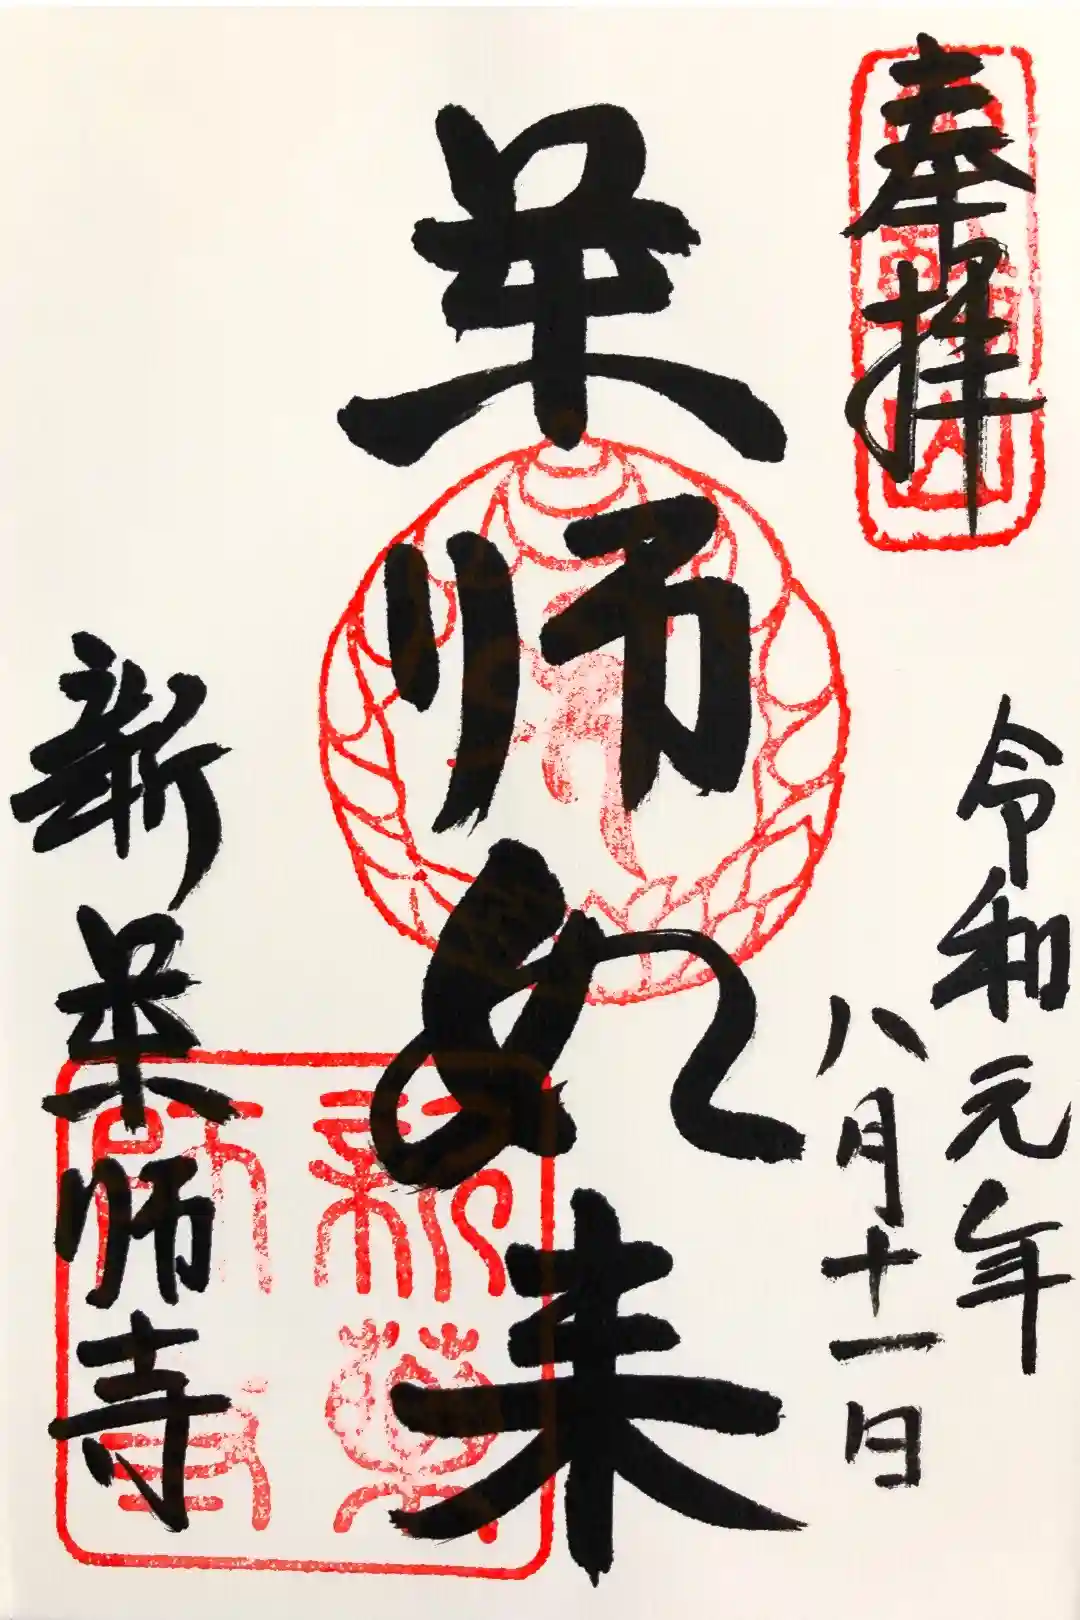 奉拝
令和元年
八月十一日
薬師如来
新薬師寺
新薬師寺